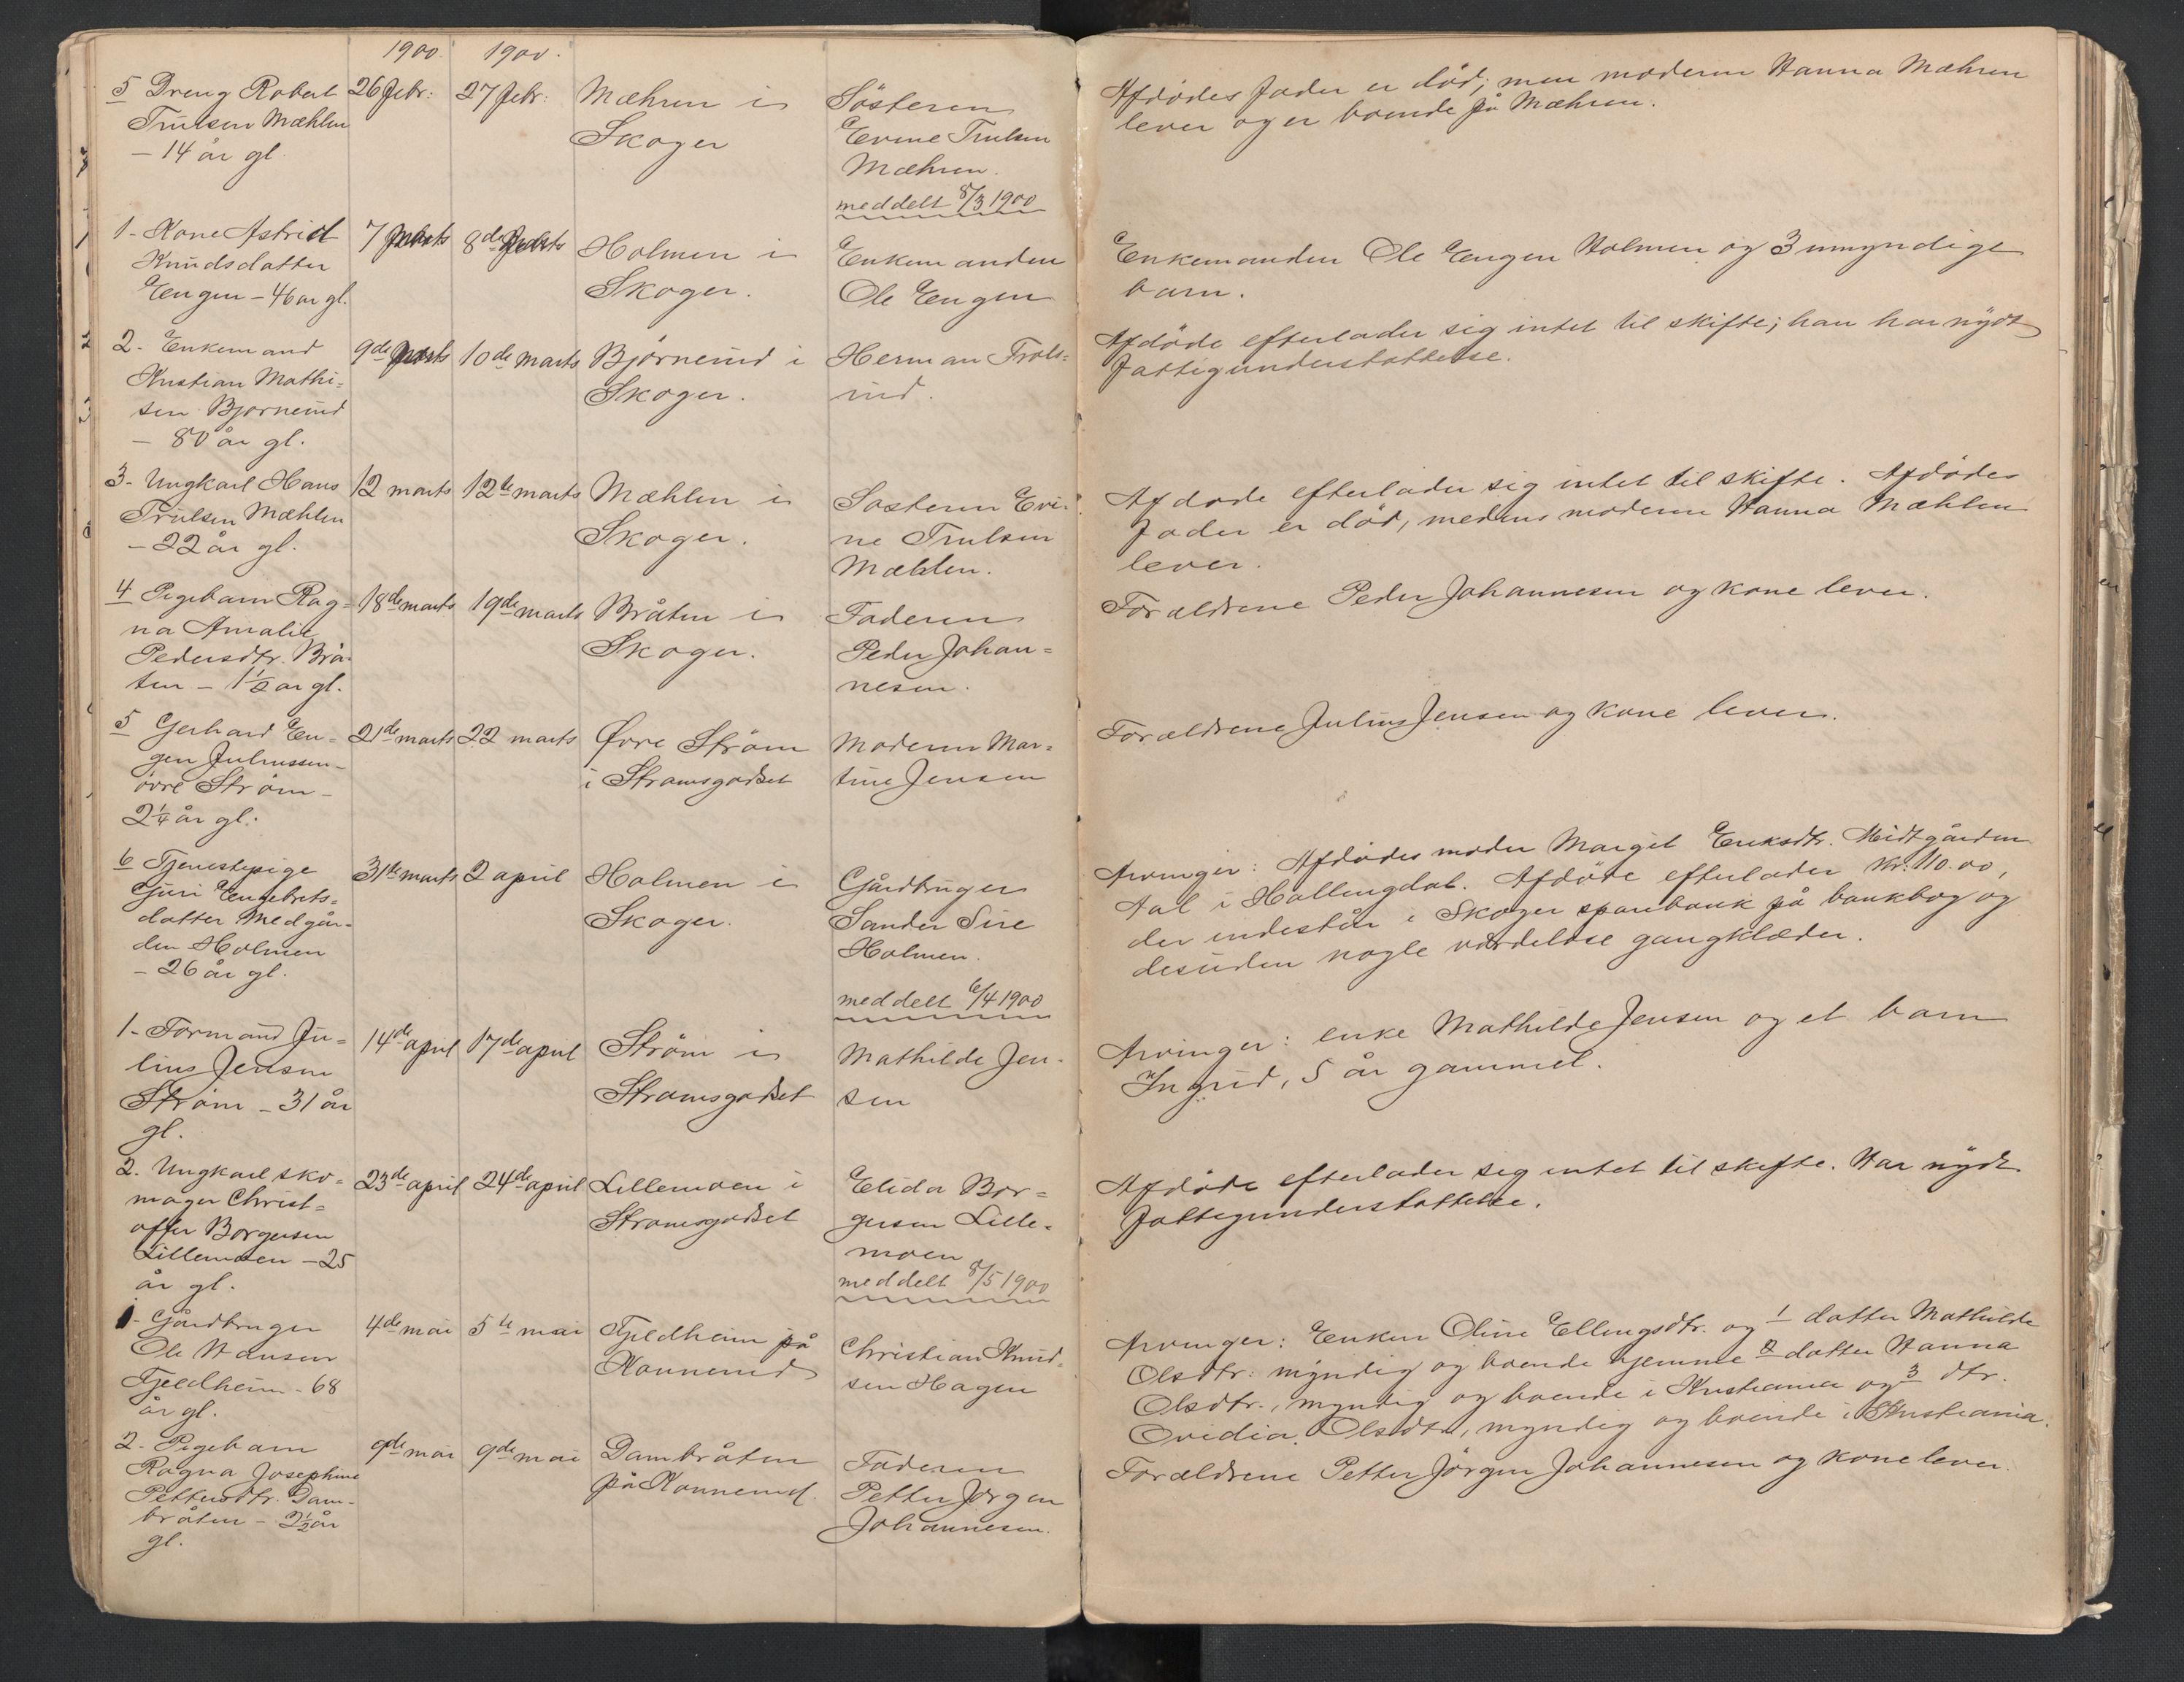 1900. 1900.
5 Dreng Robert 26 febr. 27 febr. Mæhren i Søsteren Afdødes fader er død; men moderen Hanna Mæhren
Trulsen Mæhlen Skoger Evine Trulsen lever og er boende på Mæhren.
— 14 år gl. Mæhren.
meddelt 8/3 1900
1- Kone Astrid 7 marts 8de marts Holmen i Enkemanden Enkemanden Ole Engen Holmen og 3 umyndige
Knudsdatter Skoger. Ole Engen barn.
Engen – 46 år gl.
2- Enkemand 9de marts 10de marts Bjørnerud i Herman Trols= Afdøde efterlader sig intet til skifte; han har nydt
Kristian Mathi= Skoger. rud. fattigunderstøttelse.
sen Bjørnerud
— 80 år gl.
3- Ungkarl Hans 12 marts 12te marts Mæhlen i Søsteren Evi- Afdøde efterlader sig intet til skifte. Afdødes
Trulsen Mæhlen Skoger. ne Trulsen fader er død, medens moderen Hanna Mæhlen
— 22 år gl. Mæhlen. lever.
4 Pigebarn Rag= 18de marts 19de marts Bråten i Faderen Forældrene Peder Johannesen og kone lever.
na Amalie Skoger. Peder Johan=
Pedersdtr. Brå- nesen.
ten – 1 1/2 år gl.
5 Gerhard En= 21de marts 22 marts Øvre Strøm Moderen Mar= Forældrene Julius Jensen og kone lever.
gen Juliussen – i Strømsgodset tine Jensen
øvre Strøm –
2 1/4 år gl.
6 Tjenestepige 31te marts 2 april Holmen i Gårdbruger Arvinger: Afdødes moder Margit Eriksdtr. Midtgården
Guri Engebrets= Skoger. Sander Sire Aal i Hallingdal. Afdøde efterlader kr. 110.00,
datter Medgår- Holmen. der indestår i Skoger sparebank på bankbog og
den Holmen meddelt 6/4 1900 desuden nogle værdeløse gangklæder.
— 26 år gl.
1- Formand Ju= 14de april 17de april Strøm i Mathilde Jen- Arvinger: enke Mathilde Jensen og et barn
lius Jensen Strømsgodset sen Ingrid, 5 år gammel.
Strøm – 31 år
gl.
2. Ungkarl sko= 23de april 24de april Lillemoen i Elida Bor= Afdøde efterlader sig intet til skifte. Har nydt
mager Christ= Strømsgodset gersen Lille- fattigunderstøttelse.
offer Borgersen moen
Lillemoen – 25 meddelt 8/5 1900
år gl.
1- Gårdbruger 4de mai 5te mai Fjeldheim på Christian Knud- Arvinger: Enken Oline Ellingsdtr. og 1 datter Mathilde
Ole Hansen Konnerud sen Hagen Olsdtr. myndig og boende hjemme 2 datter Hanna
Fjeldheim – 68 Olsdtr., myndig og boende i Kristiania og 3 dtr.
år gl. Ovidia Olsdtr., myndig og boende i Kristiania.
2- Pigebarn 9de mai 9de mai Dambråten Faderen Forældrene Petter Jørgen Johannesen og kone lever.
Ragna Josephine på Konnerud. Petter Jørgen
Pettersdtr. Dam- Johannesen.
bråten – 2 1/2 år
gl.